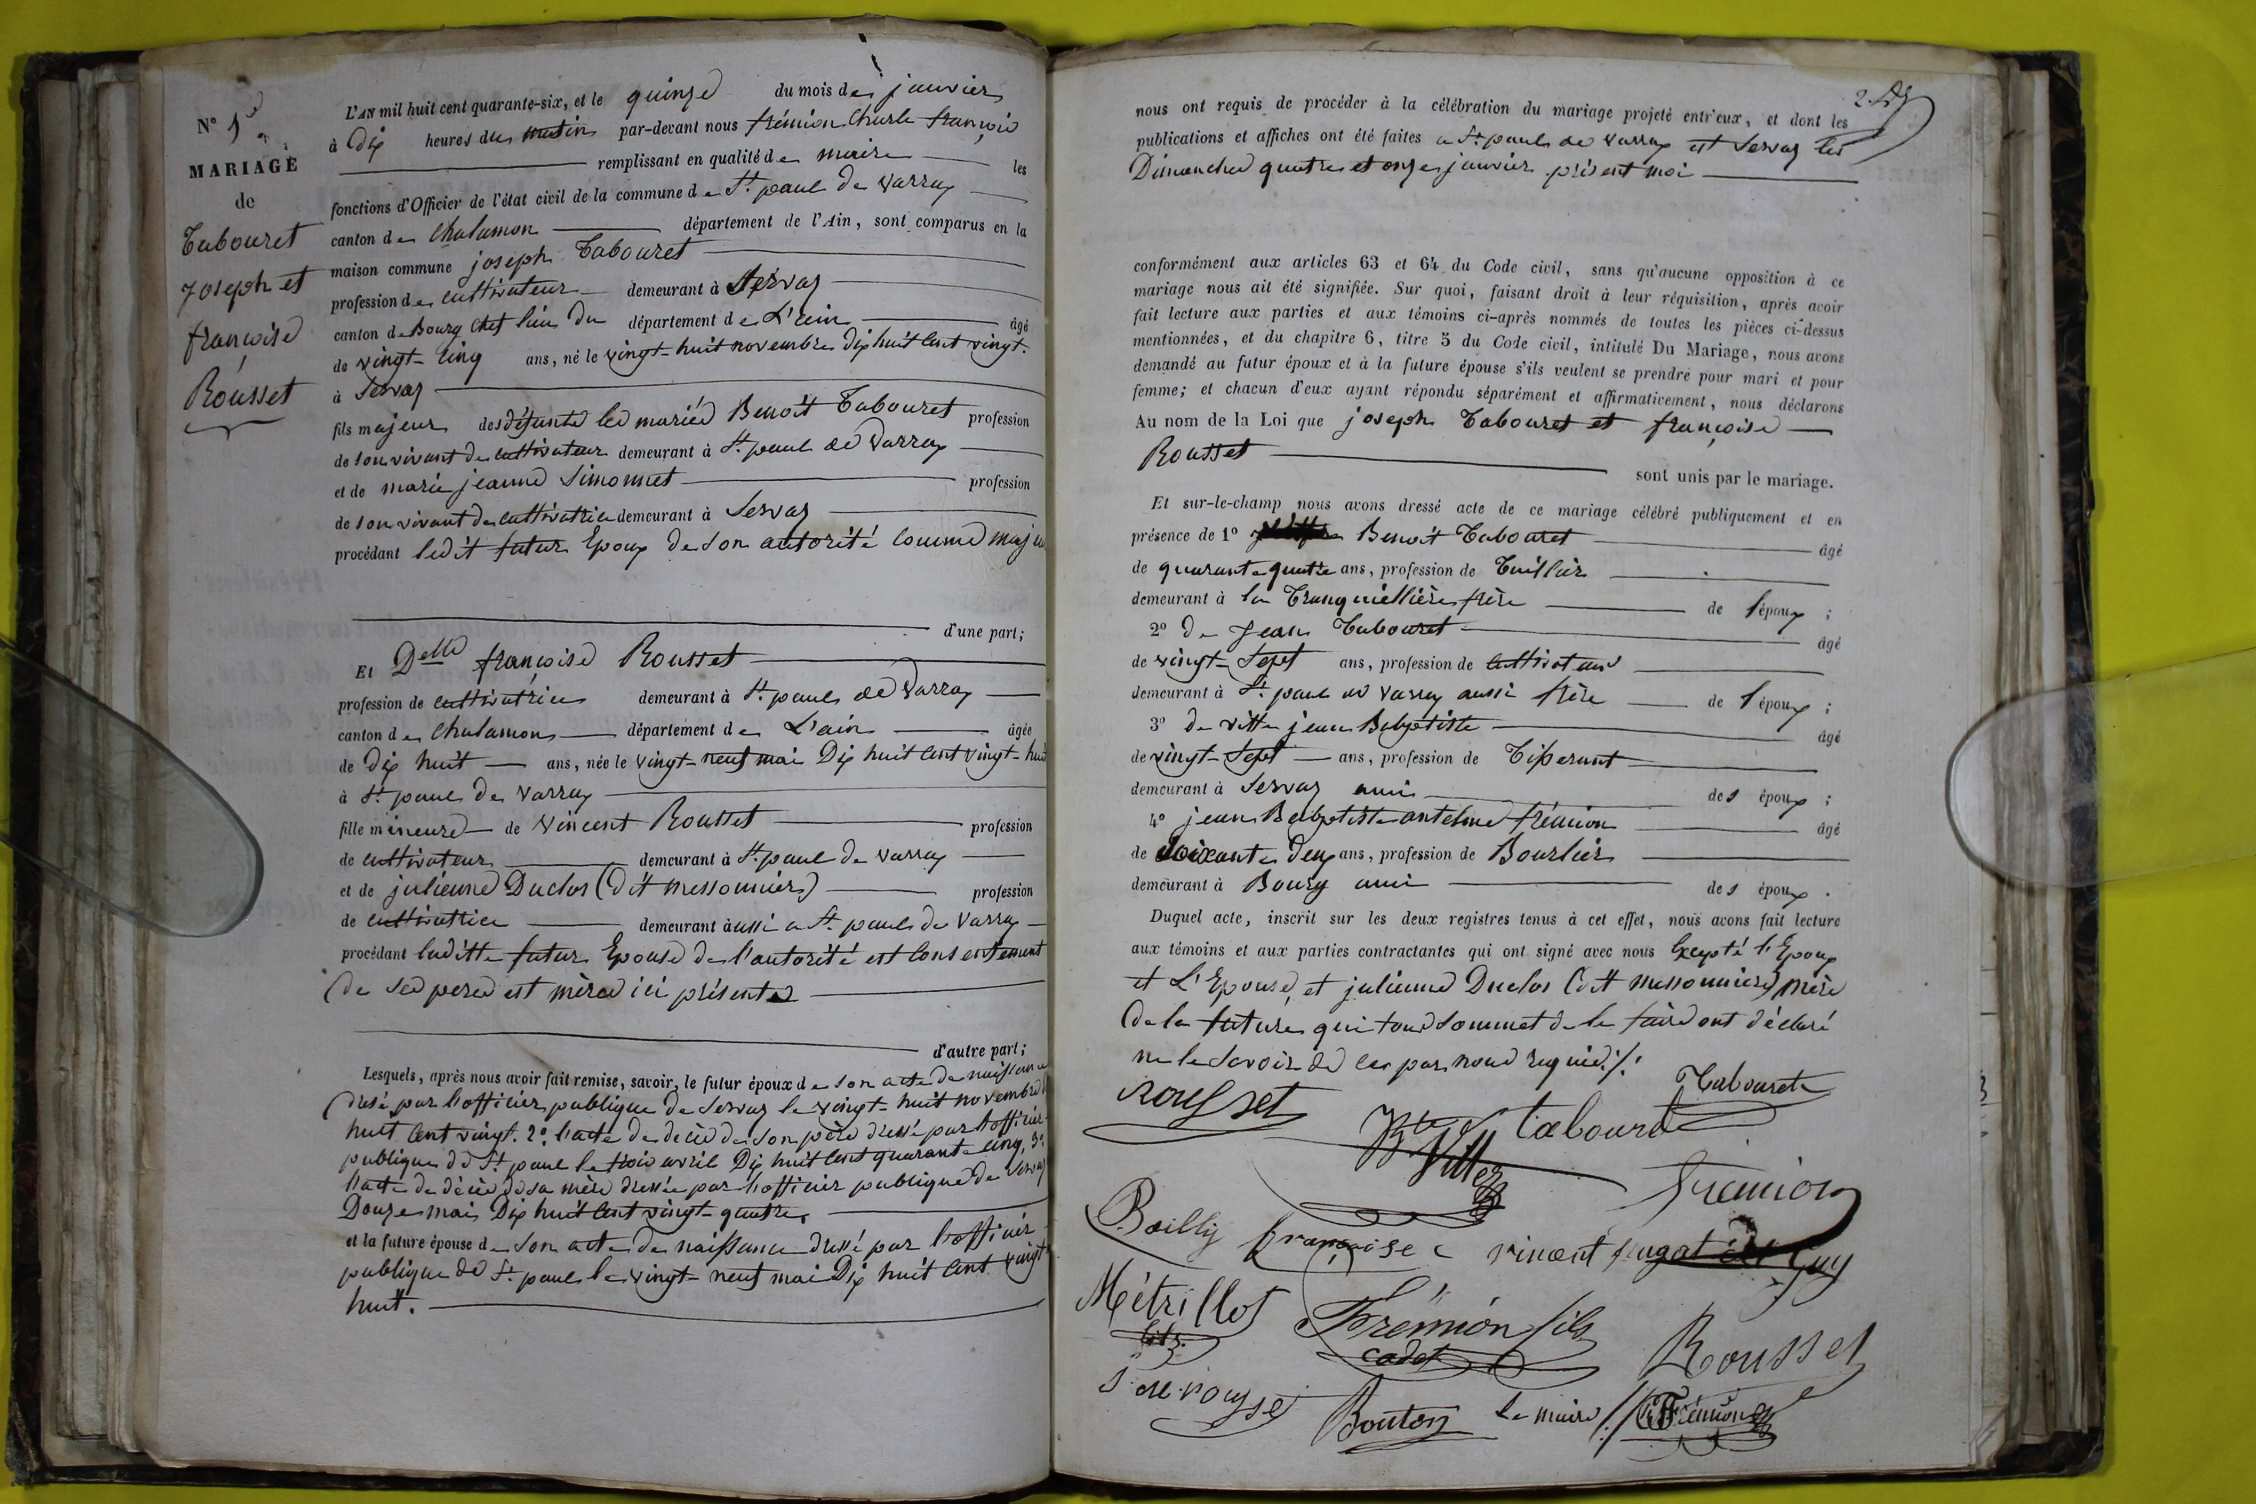 N° 1
MARIAGE
de
Tabouret
Joseph et
françoise
Rousset
L'AN mil huit cent quarante-six, et le quinze du mois de janvier
à Dix heures du matin par-devant nous frémion Charle françois
remplissant en qualité de maire les
fonctions d'Officier de l'état civil de la commune de St. paul de Varrax
canton de Chalamon département de l'Ain, sont comparus en la
maison commune joseph Tabouret
profession de cultivateur demeurant à Servas
canton de Bourg Chef lieu du département de L'ain âgé
de vingt-cinq ans, né le vingt-huit novembre dix huit cent vingt.
à Servas
fils majeur des défunts les mariés Benoit Tabouret profession
de son vivant de cultivateur demeurant à St. paul de Varrax
et de marie jeanne Simonnet profession
de son vivant de cultivatrice demeurant à Servas
procédant ledit futur Epoux de son autorité comme maje
d'une part;
Et Delle françoise Rousset
profession de cultivatrice demeurant à St. paul de Varrax
canton de Chalamon département de L'ain âgée
de dix huit ans, née le vingt-neuf mai Dix huit cent vingt-huit
à St. paul de Varrax
fille mineure de Vincent Rousset profession
de cultivateur demeurant à St. paul de Varrax
et de julienne Duclos (dit messonnier) profession
de cultivatrice demeurant à aussi a St. paul de Varrax
procédant laditte future Epouse de l'autorité est consentement
de ses pere est mère ici présents
d'autre part;
Lesquels, après nous avoir fait remise, savoir, le futur époux de son acte de naissance
dressé par l'officier publique de Servas le vingt-huit novembre
huit cent vingt. 2°. l'acte de décès de son père dressé par l'officier
publique de St. paul le trois avril Dix huit cent quarante cinq, 3°.
l'acte de décès de sa mère dressée par l'officier publique de Servas
Douze mai Dix huit cent vingt-quatre.
et la future épouse de son acte de naissance dressé par l'officier
publique de St. paul le vingt-neuf mai Dix huit cent vingt
huit.
nous ont requis de procéder à la célébration du mariage projeté entr'eux, et dont les
publications et affiches ont été faites a St. paul de Varrax est Servas les
Dimanches quatre et onze janvier présent moi
conformément aux articles 63 et 64 du Code civil, sans qu'aucune opposition à ce
mariage nous ait été signifiée. Sur quoi, faisant droit à leur réquisition, après avoir
fait lecture aux parties et aux témoins ci-après nommés de toutes les pièces ci-dessus
mentionnées, et du chapitre 6, titre 5 du Code civil, intitulé Du Mariage, nous avons
demandé au futur époux et à la future épouse s'ils veulent se prendre pour mari et pour
femme; et chacun d'eux ayant répondu séparément et affirmativement, nous déclarons
Au nom de la Loi que joseph Tabouret et françoise
Rousset sont unis par le mariage.
Et sur-le-champ nous avons dressé acte de ce mariage célébré publiquement et en
présence de 1° Benoit Tabouret âgé
de quarante quatre ans, profession de Tuillier
demeurant à la Tranquellière frère de l'époux ;
2° de Jean Tabouret âgé
de vingt-sept ans, profession de cultivateur
demeurant à St. paul de Varrax aussi frère de l'époux ;
3° de vitte jean Babptiste âgé
de vingt-sept ans, profession de Tisserant
demeurant à Servas ami des époux ;
4° jean Babptiste antelme frémion âgé
de soixante deux ans, profession de Bourlier
demeurant à Bourg ami des époux .
Duquel acte, inscrit sur les deux registres tenus à cet effet, nous avons fait lecture
aux témoins et aux parties contractantes qui ont signé avec nous Excepté l'Epoux
et L'Epouse, et julienne Duclos (dit messonnier) mère
de la future qui tous sommet de le faire ont déclaré
ne le savoir de ce par nous requis ./.
rousset
Tabouret
Bte Vitte
tabouret
fremion
Boilly françoise
vincent
Métrillot
fils
Frémion fils
cadet
Rousset
Bouton
le maire
Frémion